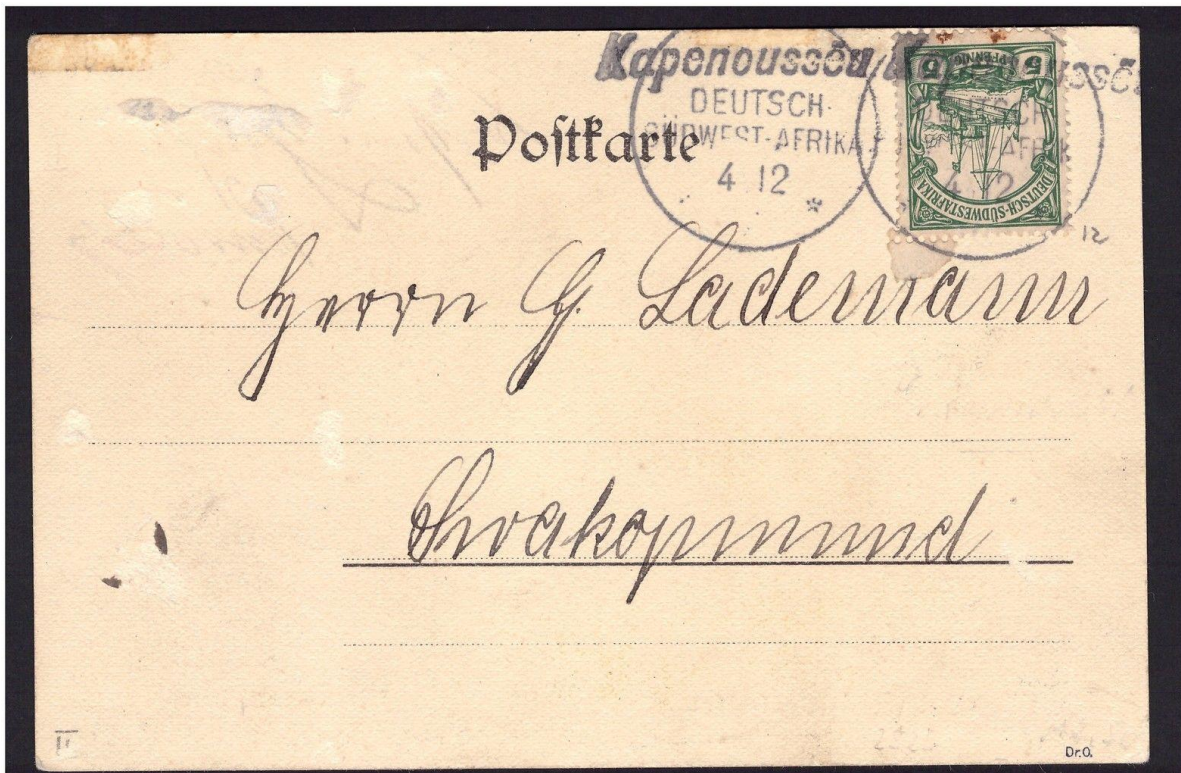 Kapenoussēu
DEUTSCH-
SÜDWEST-AFRIKA
4 12
*
5 PFENNIG 5
DEUTSCH-SÜDWESTAFRIKA
4 12
12
Poſtkarte
Herrn G. Lademann
Swakopmund
Dr.O.